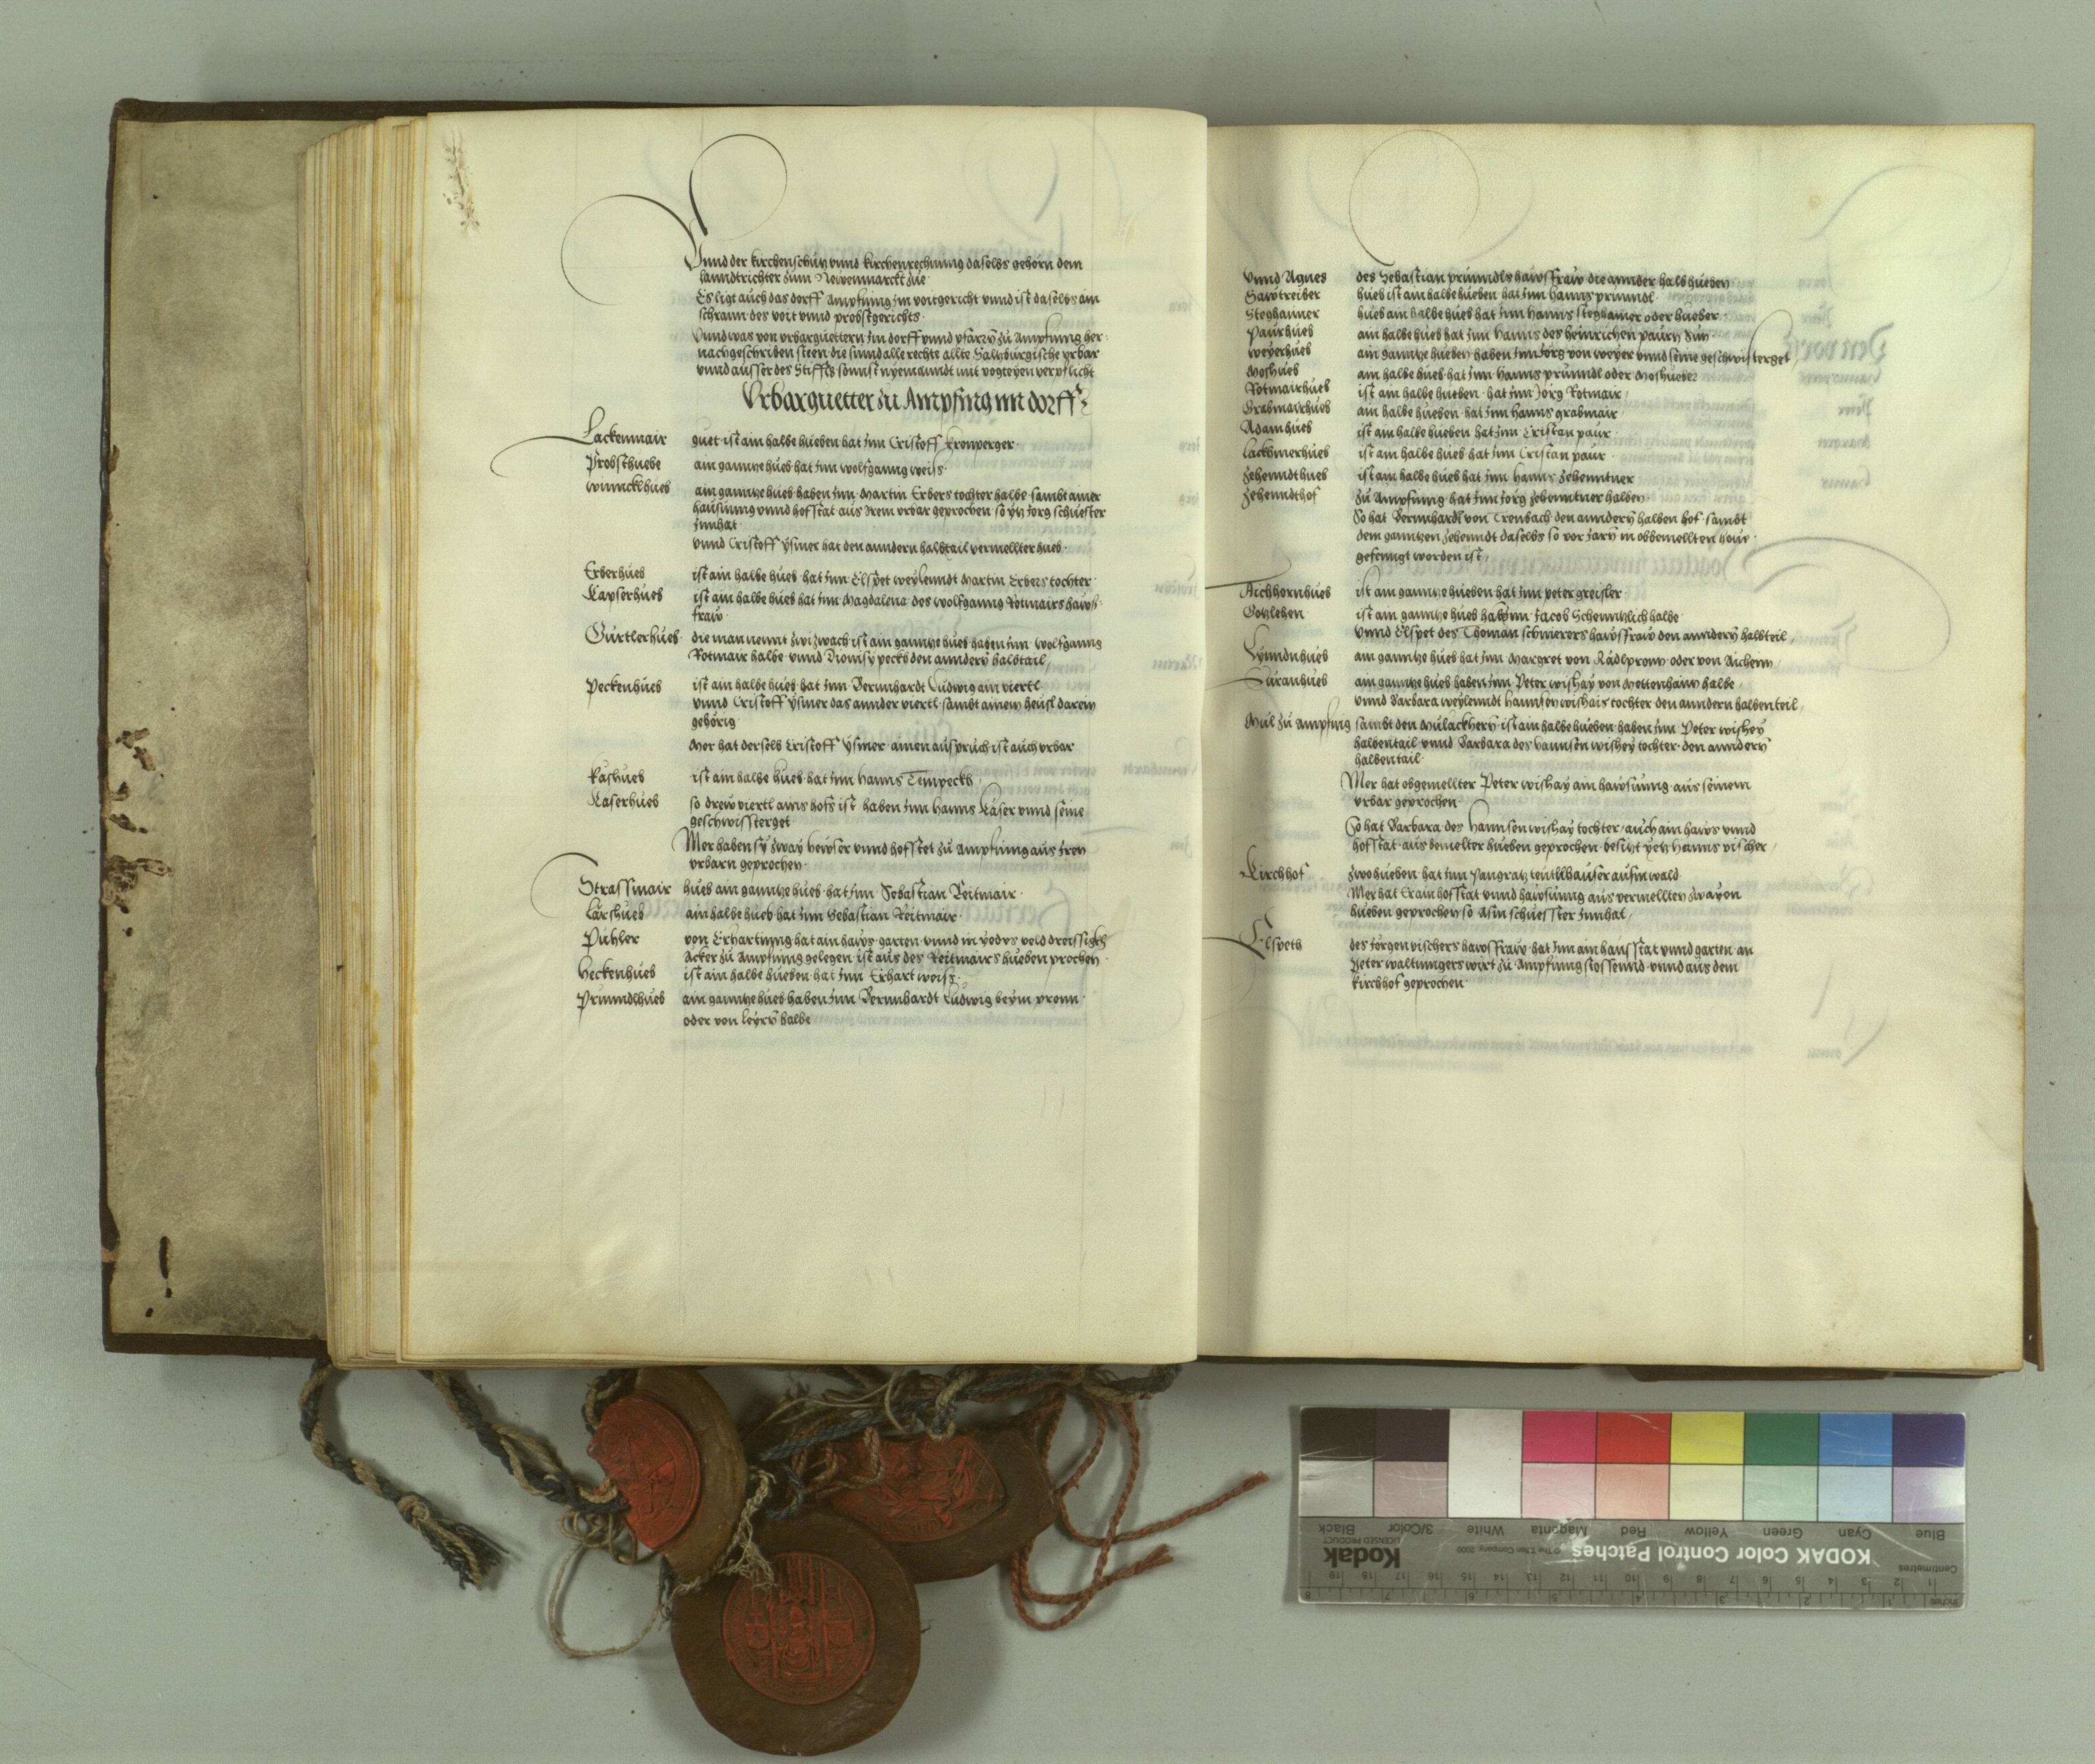 Vnnd der kirchenschutz vnnd kirchenrechnung daselbs gehörn dem
lanndtrichter zum Newenmarckt zue
Es ligt auch das dorff Ampfing im voitgericht vnnd ist daselbs ain
schrann des voit vnnd probstgerichts
Vnnd was von vrbarguettern im dorff vnnd pfarrn zu Ampfing her
nachgeschriben steen die sinnd alle rechte allte Saltzburgische vrbar
vnnd ausser des Stiffts sonnst nyemanndt mit vogteyen verpflicht
Vrbarguetter zu Ampfing im dorff
Lackenmair guet ist ain halbe hueben hat inn Cristoff Kronperger
Probsthuebe ain ganntze hueb hat inn Wolfgang weiss
Wincklhueb ain ganntze hueb haben inn Martin Erbers tochter halbe sambt ainer
hausung vnnd hofstat aus irem vrbar geprochen so ytz Jorg schuester
innhat
vnnd Cristoff ysmer hat den anndern halbtail vermellter hueb
Erberhueb ist ain halbe hueb hat inn Elspet weylenndt Martin Erbers tochter
Kayserhueb ist ain halbe hueb hat inn Magdalena des wolfgang Rotmairs hawß
fraw
Gürtlerhueb die man nennt zwizwach ist ain ganntze hueb haben inn Wolfgang
Rotmair halbe vnnd Dionisy pecks den anndern halbtail
Peckenhueb ist ain halbe hueb hat inn Bernnhardt Ludwig ain viertl
vnnd Cristoff ysmer das annder viertl sambt ainem heusl darein
gehörig
Mer hat derselb Cristoff ysmer ainen auspruch ist auch vrbar
Kashueb ist ain halbe hueb hat inn Hanns Tempeckh
Kaserhueb so drew viertl ains hofs ist haben inn Hanns Kaser vnnd seine
geschwissterget
Mer haben sy zway hewser vnnd hofstet zu Ampfing aus iren
vrbarn geprochen
Strassmair hueb ain ganntze hueb hat inn Sebastian Reitmair
Larshueb ain halbe hueb hat inn Sebastian Reitmair
Puhler von Erharting hat ain haws garten vnnd in yedes veld dreissigkh
Acker zu Ampfing gelegen ist aus des Reitmairs hueben prochen
Heckenhueb ist ain halbe hueben hat inn Erhart weiss
Prunndlhueb ain ganntze hueb haben inn Bernnhardt Ludwig beym pronn
oder von leyrn halbe
Vnnd Agnes des Sebastian prunndls hawssfraw die annder halb hueben
Sawtreiber hueb ist ain halbe hueben hat inn Hanns prunndl
Steghamer hueb ain halbe hueb hat inn Hanns Steghamer oder hueber
Paurhueb ain halbe hueb hat inn Hanns des heinrichen paurn Sun
Weyerhueb ain ganntze hueben haben inn Jorg von weyer vnnd seine geschwisterget
Moshueb ain halbe hueb hat inn Hanns prunndl oder Moshueber
Rotmairhueb ist ain halbe hueben hat inn Jorg Rotmair
Grabmairhueb ain halbe hueben hat inn Hanns grabmair
Adamhueb ist ain halbe hueben hat inn Cristan paur
Lackhnerhueb ist ain halbe hueb hat inn Cristan paur
Zehenndthueb ist ain halbe hueb hat inn Hanns Zehenntner
Zehenndthof zu Ampfing hat inn Jorg Zehenntner halben
So hat Bernnhardt von Trenbach den anndern halben hof sambt
dem ganntzen zehenndt daselbs so vor Jarn in obbemellten houe
gefenngt worden ist
Aichhornhueb ist ain ganntze hueben hat inn peter greisler
Gotzlehen ist ain ganntze hueb hat inn Jacob Schenntzlich halbe
vnnd Elspet des Thoman schmerers hawssfraw den anndern halbteil
Lynndnhueb ain ganntze hueb hat inn Margret von Rädlpronn oder von Aichem
Suranhueb ain ganntze hueb haben inn Peter wishay von Mettenhaim halbe
vnnd Barbara weylenndt Hannsen wishais tochter den anndern halbenteil
Mül zu Ampfing sambt den Mulackhern ist ain halbe hueben haben inn Peter wishey
halbentail vnnd Barbara des Hannsen wishey tochter den anndern
halbentail
Mer hat obgemellter Peter wishay ain hawsung aus seinem
vrbar geprochen
So hat Barbara des Hannsen wishay tochter auch ain haws vnnd
hofstat aus bemelter hueben geprochen besitzt yetz Hanns vischer
Kirchhof zwo hueben hat inn Pangratz teutlhauser auf'm wald
Mer hat Er ain hofstat vnnd hawsung aus vermellten zwayen
hueben geprochen so Asm schuesster innhat
Elspeth des Jorgen vischers hawssfraw hat inn ain hausstat vnnd garten an
Peter waltingers wirt zu Ampfing stossennd vnnd aus dem
kirchhof geprochen
Blue Cyan Green Yellow Red Magenta White 3/Color Black
KODAK Color Control Patches © The Tiffen Company, 2000 Kodak
LICENSED PRODUCT
Centimetres 1 2 3 4 5 6 7 8 9 10 11 12 13 14 15 16 17 18 19
Inches 1 2 3 4 5 6 7 8